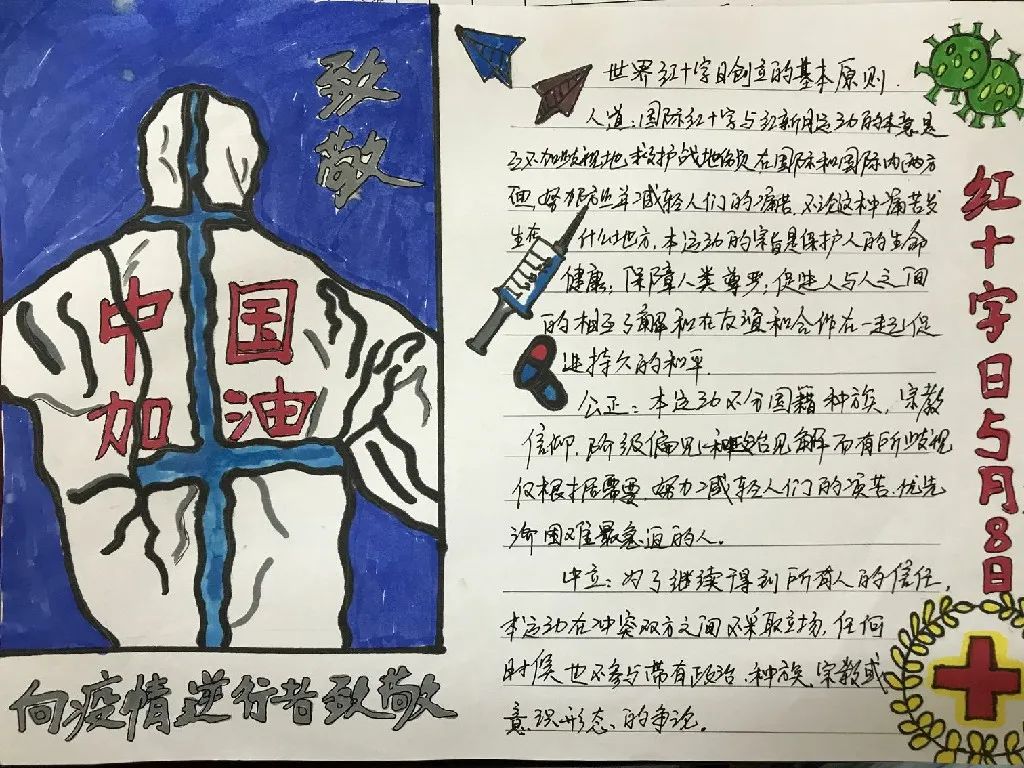 致敬
中国
加油
向疫情逆行者致敬
世界红十字日创立的基本原则.
人道:国际红十字与红新月运动的本意是
不加歧视地救护战地伤员在国际和国际内两方
面努力防止并减轻人们的痛苦,不论这种痛苦发
生在什么地方,本运动的宗旨是保护人的生命
健康,保障人类尊严,促进人与人之间
的相互了解和在友谊和合作在一起促
进持久的和平.
公正:本运动不分国籍种族,宗教
信仰,阶级偏见和政治见解而有所歧视
仅根据需要努力减轻人们的疾苦,优先
济困难最急迫的人。
中立:为了继续得到所有人的信任,
本运动在冲突双方之间不采取立场,任何
时候也不参与带有政治、种族、宗教或
意识形态、的争论。
红十字日5月8日